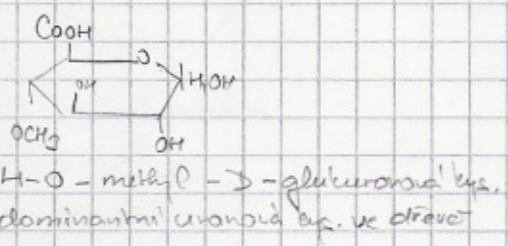 COOH
O
OH
H,OH
OCH3
OH
4-O-methyl-D-glukuronová kys.
dominantní uronová kys. ve dřevě